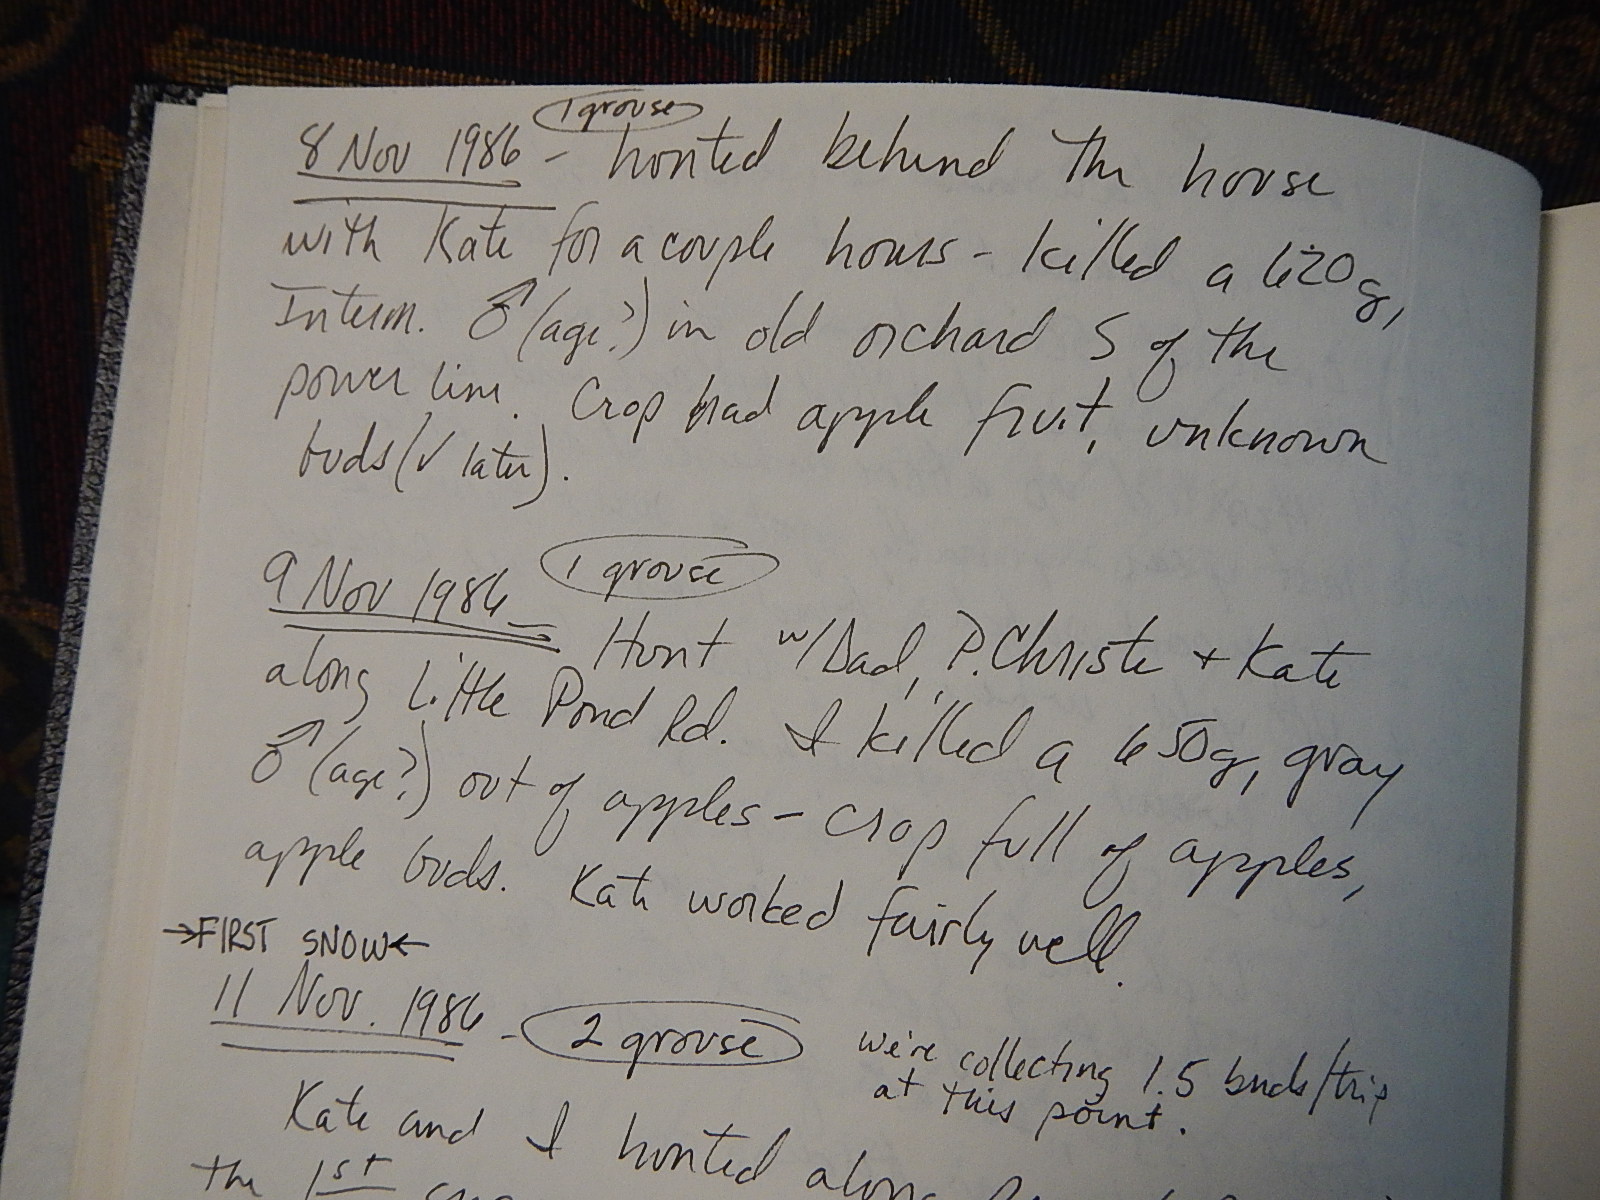 1 grouse
8 Nov 1986 - hunted behind the house
with Kate for a couple hours - killed a 620g,
Interm. ♂ (age?) in old orchard S of the
power line. Crop had apple fruit, unknown
buds (✓ later).
9 Nov 1986 - 1 grouse
Hunt w/Dad, P. Christie + Kate
along Little Pond Rd. I killed a 650g, gray
♂ (age?) out of apples - crop full of apples,
apple buds. Kate worked fairly well.
→FIRST SNOW←
11 Nov. 1986 - 2 grouse
we're collecting 1.5 birds/trip
at this point.
Kate and I hunted along
the 1st